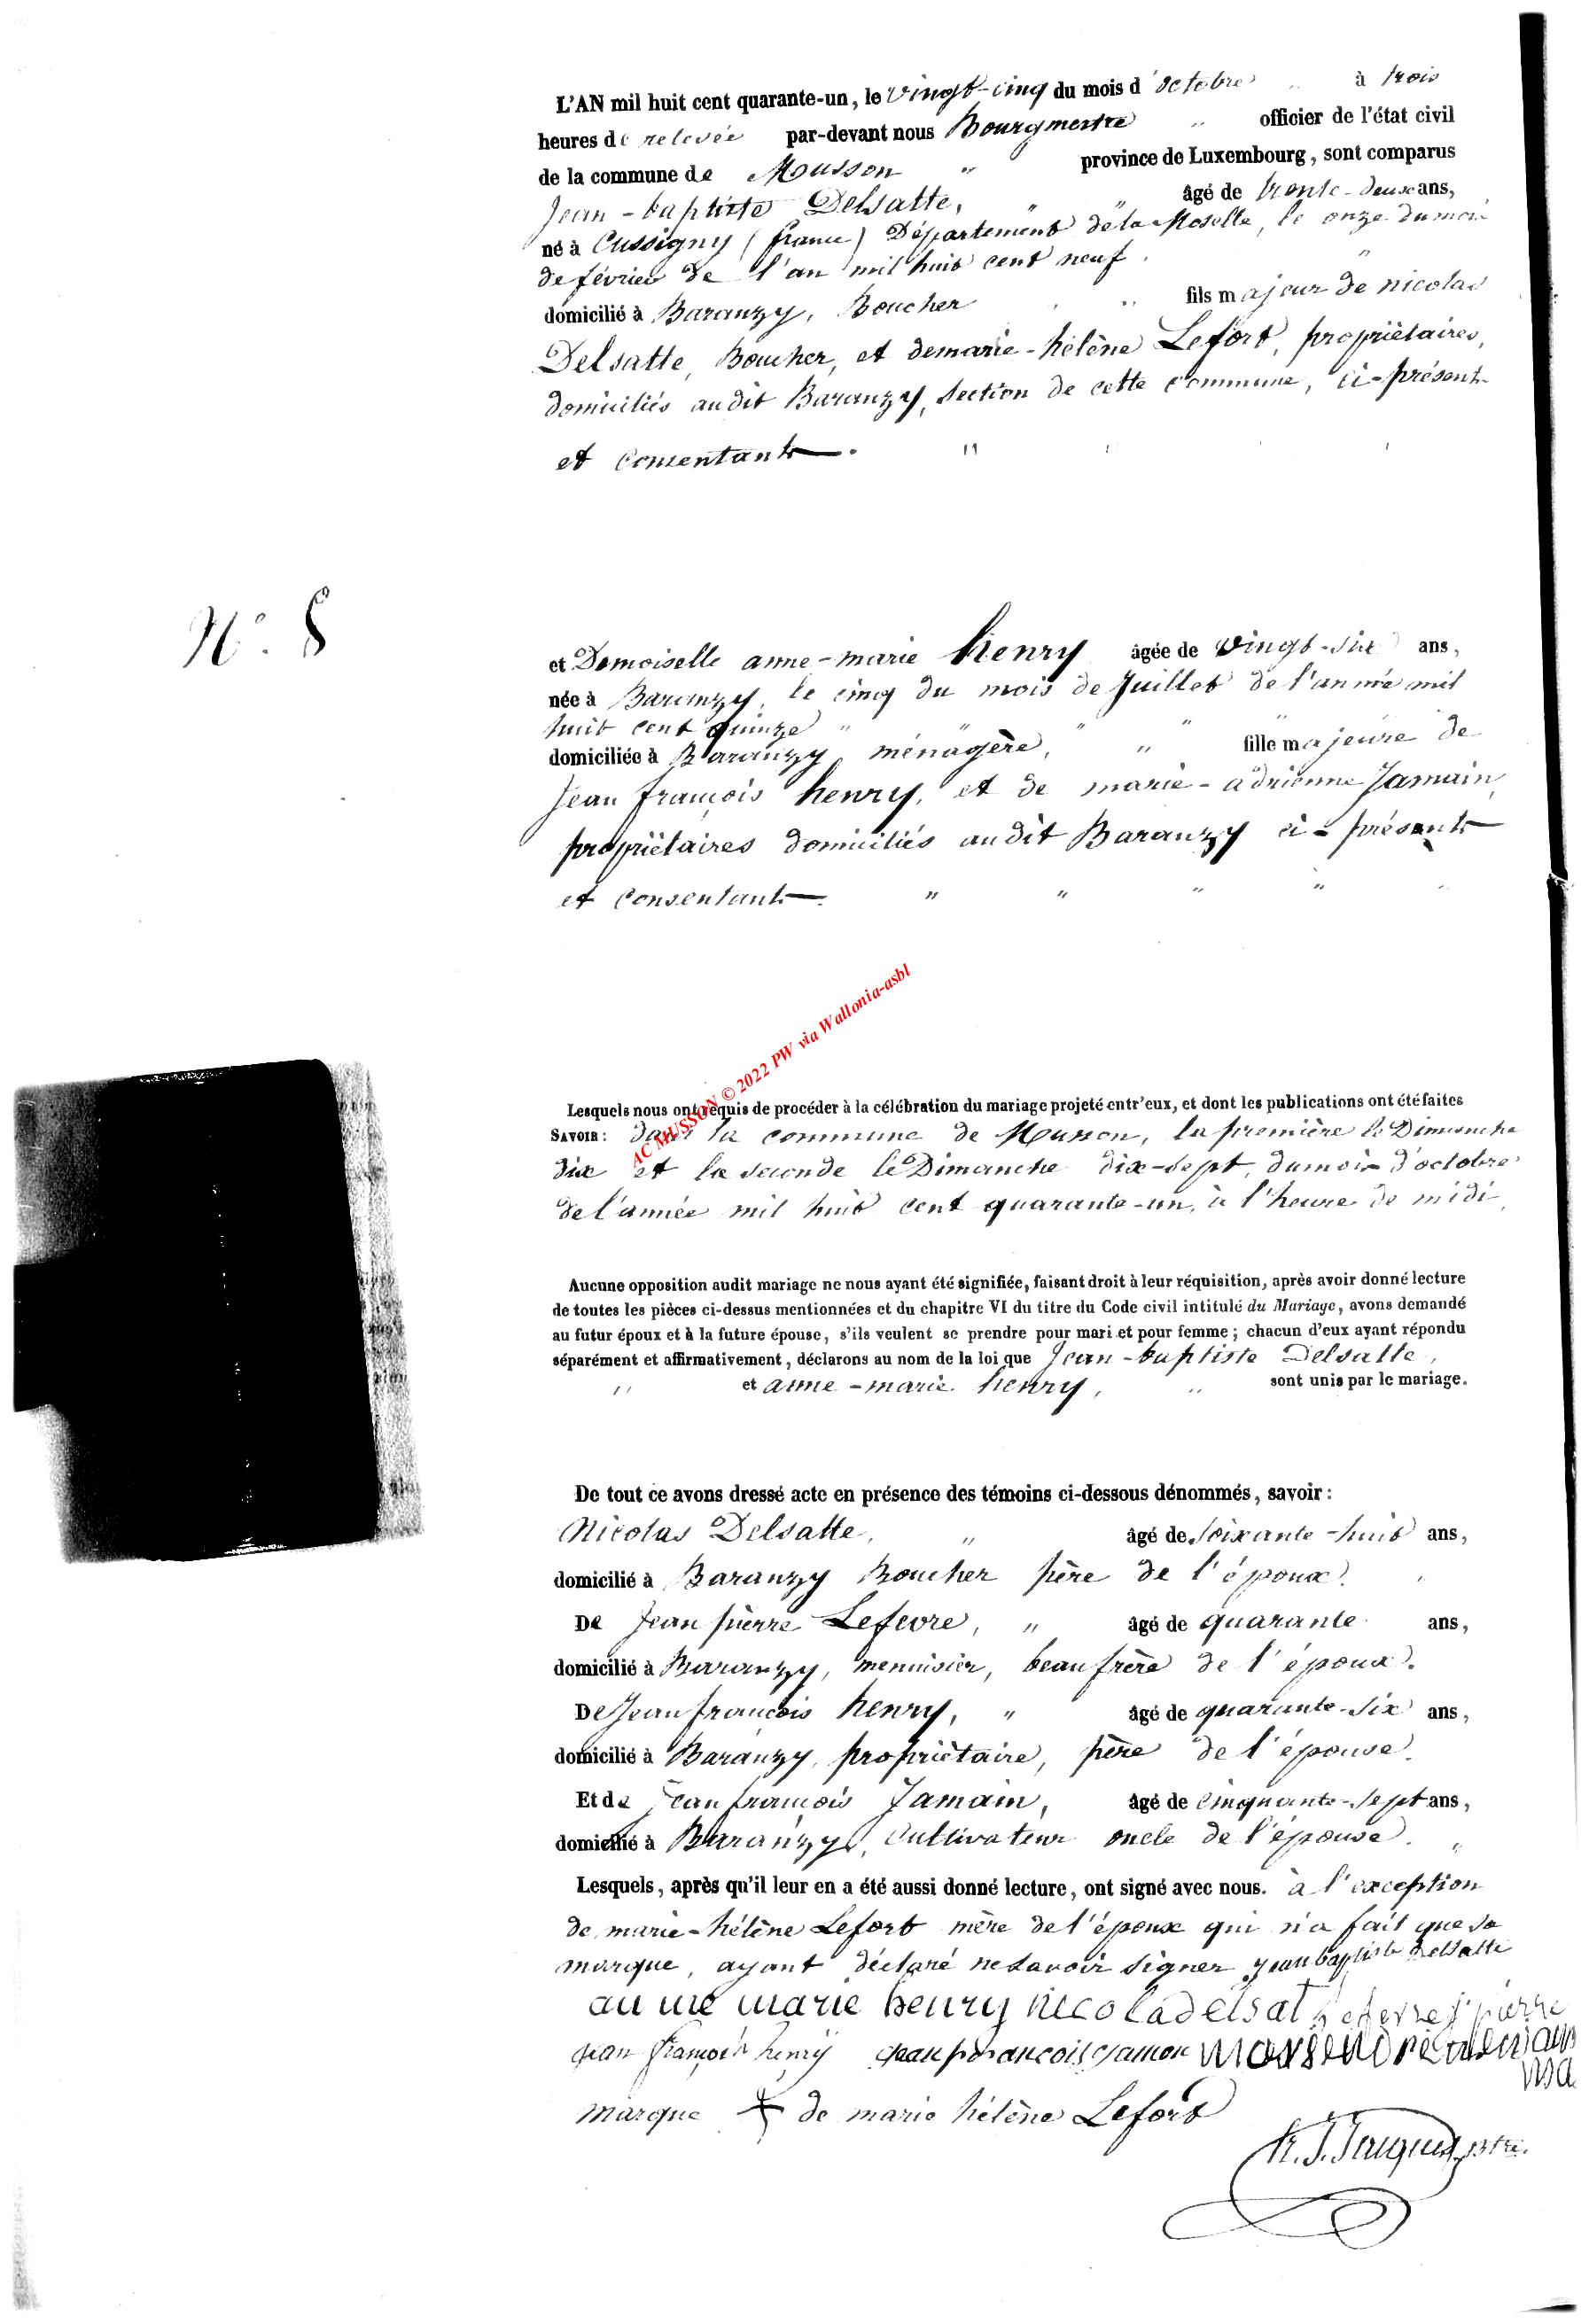 L'AN mil huit cent quarante-un, le vingt-cinq du mois d'octobre " à trois
heures de relevée par-devant nous Bourgmestre " officier de l'état civil
de la commune de Musson " province de Luxembourg, sont comparus
Jean-baptiste Delsatte, " " âgé de trente-deux ans,
né à Cussigny (france) Département de la Moselle, le onze du mois
de février de l'an mil huit cent neuf. "
domicilié à Baranzy, Boucher " fils majeur de nicolas
Delsatte, Boucher, et de marie-hélène Lefort, propriètaires,
domiciliés audit Baranzy, section de cette commune, ci-présents
et consentants. "
N° 8
et Demoiselle anne-marie henry âgée de vingt-six ans,
née à Baranzy, le cinq du mois de Juillet de l'année mil
huit cent quinze " " " "
domiciliée à Baranzy, ménagère, " fille majeure de
Jean françois henry, et de marie-adrienne Jamain,
propriètaires domiciliés audit Baranzy ci-présents
et consentants. " " " "
AC MUSSON © 2022 PW via Wallonia-asbl
Lesquels nous ont requis de procéder à la célébration du mariage projeté entr'eux, et dont les publications ont été faites
SAVOIR: dans la commune de Musson, la première le Dimanche
dix et la seconde le Dimanche dix-sept, du mois d'octobre
de l'année mil huit cent quarante-un, à l'heure de midi,
Aucune opposition audit mariage ne nous ayant été signifiée, faisant droit à leur réquisition, après avoir donné lecture
de toutes les pièces ci-dessus mentionnées et du chapitre VI du titre du Code civil intitulé du Mariage, avons demandé
au futur époux et à la future épouse, s'ils veulent se prendre pour mari et pour femme; chacun d'eux ayant répondu
séparément et affirmativement, déclarons au nom de la loi que Jean-baptiste Delsatte,
" et anne-marie henry, " sont unis par le mariage.
De tout ce avons dressé acte en présence des témoins ci-dessous dénommés, savoir:
Nicolas Delsatte, " âgé de soixante-huit ans,
domicilié à Baranzy Boucher père de l'époux. "
De Jean pierre Lefevre, " âgé de quarante ans,
domicilié à Baranzy, menuisier, beau frère de l'époux.
De Jean françois henry, " âgé de quarante-six ans,
domicilié à Baranzy, propriètaire, père de l'épouse.
Et de Jean françois Jamain, âgé de cinquante-sept ans,
domicilié à Baranzy, Cultivateur oncle de l'épouse. "
Lesquels, après qu'il leur en a été aussi donné lecture, ont signé avec nous. à l'exception
de marie-hélène Lefort mère de l'époux qui n'a fait que sa
marque, ayant déclaré ne savoir signer jean baptiste delsatte
anne marie henry nicola delsat Lefevre J pierre
jean françois henry jean francois jamon
marque + de marie hélène Lefort